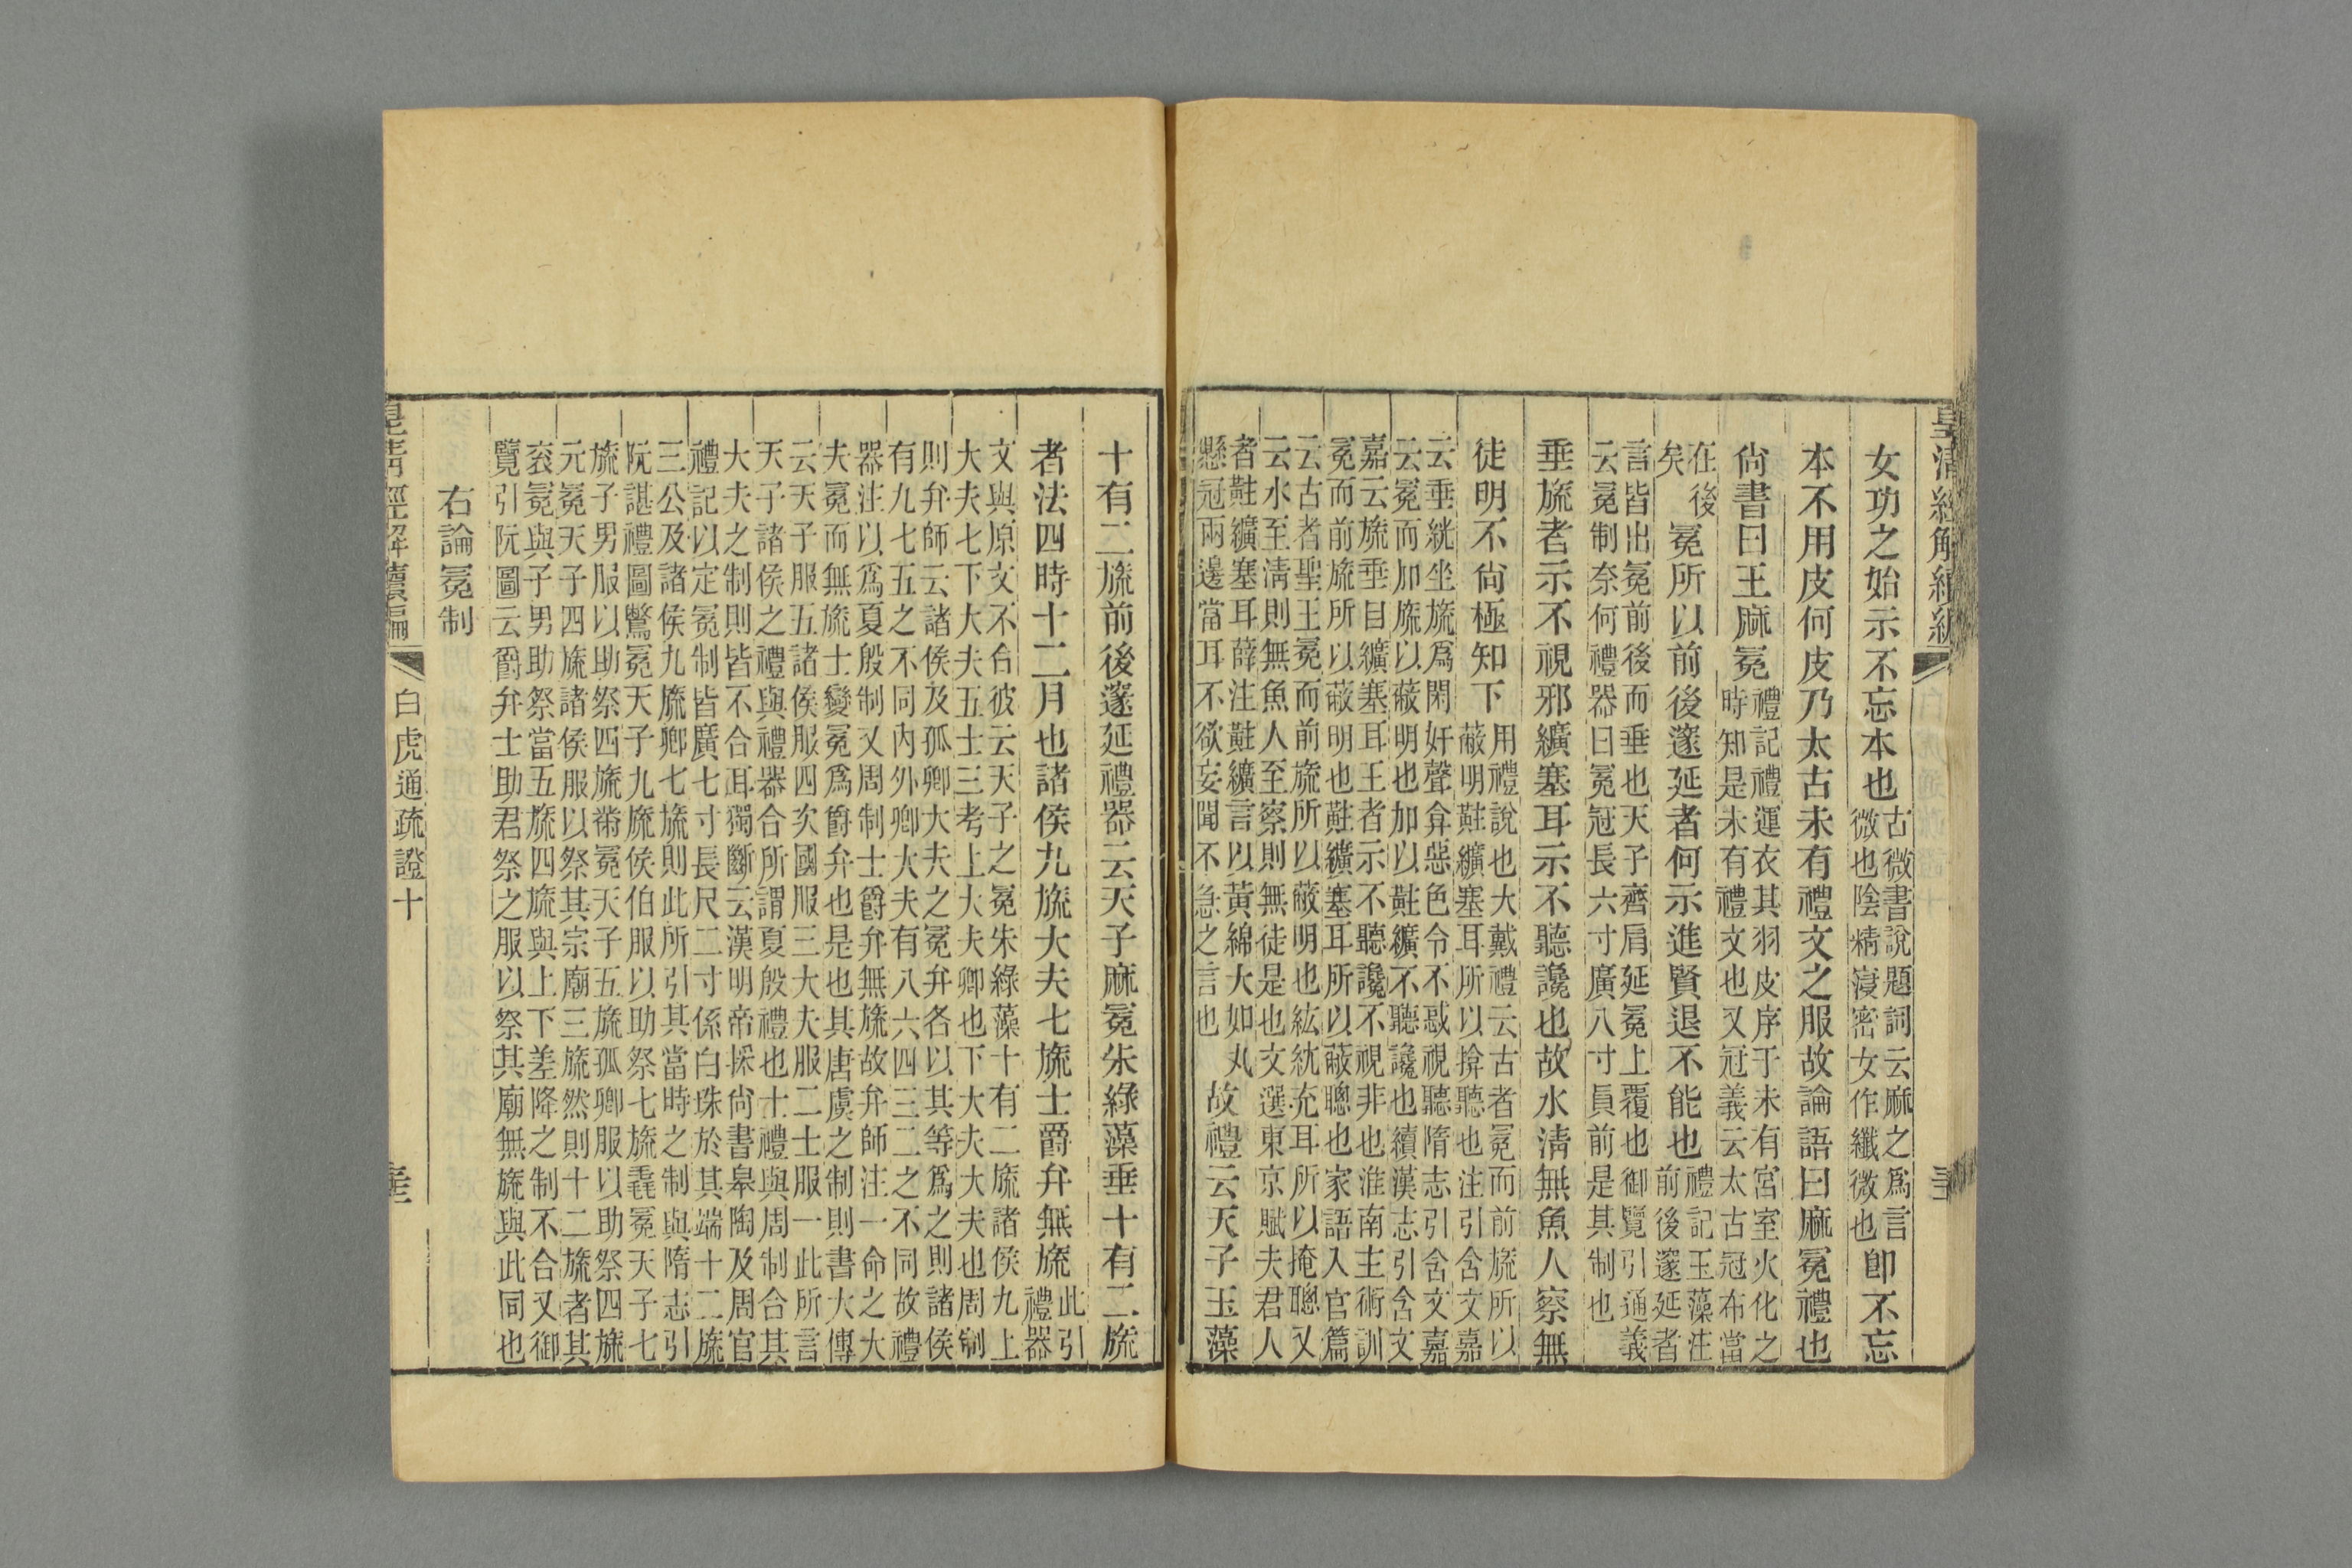 皇清經解續編
女功之始示不忘本也古微書說題詞云麻之爲言
微也陰精寖密女作纖微也卽不忘
本不用皮何皮乃太古未有禮文之服故論語曰麻冕禮也
尚書曰王麻冕禮記禮運衣其羽皮序于未有宮室火化之
時知是未有禮文也又冠義云太古冠布當
在後
矣冕所以前後邃延者何示進賢退不能也禮記玉藻注
前後邃延者
言皆出冕前後而垂也天子齊肩延冕上覆也御覽引通義
云冕制奈何禮器曰冕冠長六寸廣八寸員前是其制也
垂旒者示不視邪纊塞耳示不聽讒也故水清無魚人察無
徒明不尚極知下用禮說也大戴禮云古者冕而前旒所以
蔽明黈纊塞耳所以揜聽也注引含文嘉
云垂絖坐旒爲閑奸聲弇惡色令不惑視聽隋志引含文嘉
云冕而加旒以蔽明也加以黈纊不聽讒也續漢志引含文
嘉云旒垂目纊塞耳王者示不聽讒不視非也淮南主術訓
冕而前旒所以蔽明也黈纊塞耳所以蔽聰也家語入官篇
云古者聖王冕而前旒所以蔽明也紘紞充耳所以掩聰又
云水至清則無魚人至察則無徒是也文選東京賦夫君人
者黈纊塞耳薛注黈纊言以黃綿大如丸
懸冠兩邊當耳不欲妄聞不急之言也故禮云天子玉藻
十有二旒前後邃延禮器云天子麻冕朱綠藻垂十有二旒
者法四時十二月也諸侯九旒大夫七旒士爵弁無旒此引
禮器
文與原文不合彼云天子之冕朱綠藻十有二旒諸侯九上
大夫七下大夫五士三考上大夫卿也下大夫大夫也周制
則弁師云諸侯及孤卿大夫之冕弁各以其等爲之則諸侯
有九七五之不同內外卿大夫有八六四三二之不同故禮
器注以爲夏殷制又周制士爵弁無旒故弁師注一命之大
夫冕而無旒士變冕爲爵弁也是也其唐虞之制則書大傳
云天子服五諸侯服四次國服三大夫服二士服一此所言
天子諸侯之禮與禮器合所謂夏殷禮也士禮與周制合其
大夫之制則皆不合耳獨斷云漢明帝採尚書皋陶及周官
禮記以定冕制皆廣七寸長尺二寸係白珠於其端十二旒
三公及諸侯九旒卿七旒則此所引其當時之制與隋志引
阮諶禮圖鷩冕天子九旒侯伯服以助祭七旒毳冕天子七
旒子男服以助祭四旒黹冕天子五旒孤卿服以助祭四旒
元冕天子四旒諸侯服以祭其宗廟三旒然則十二旒者其
衮冕與子男助祭當五旒四旒與上下差降之制不合又御
覽引阮圖云爵弁士助君祭之服以祭其廟無旒與此同也
右論冕制
皇清經解續編 白虎通疏證十